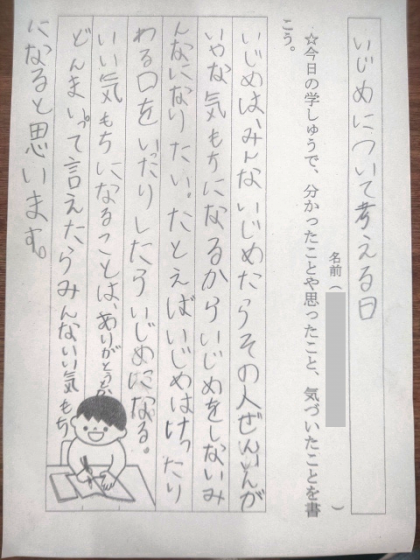 いじめについて考える日
名前（　　　）
☆今日の学しゅうで、分かったことや思ったこと、気づいたことを書
こう。
いじめは、みんないじめたらその人ぜんいんが
いやな気もちになるからいじめをしないみ
んなになりたい。たとえばいじめはけったり
わる口をいったりしたらいじめになる。
いい気もちになることは、ありがとうか
どんまいって言えたらみんないい気もち
になると思います。